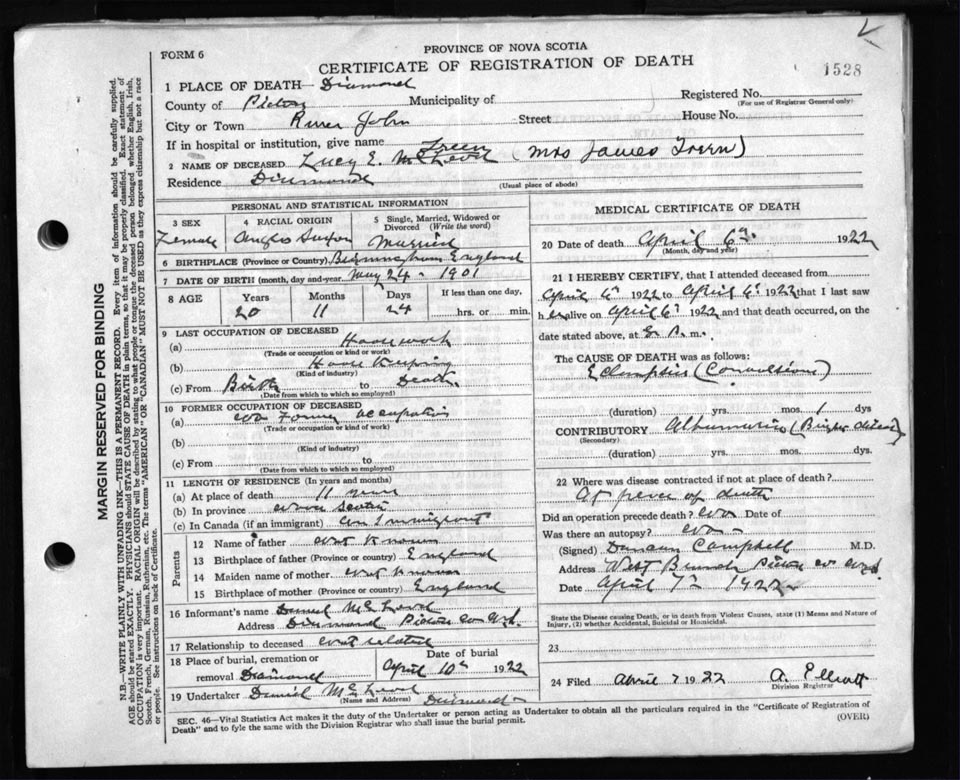 FORM 6
PROVINCE OF NOVA SCOTIA
CERTIFICATE OF REGISTRATION OF DEATH
1528
1 PLACE OF DEATH— Diamond
County of Pictou Municipality of Registered No.
(For use of Registrar General only)
City or Town River John Street House No.
If in hospital or institution, give name
2 NAME OF DECEASED Lucy E. McLeod (Mrs James )
Residence Diamond
(Usual place of abode)
PERSONAL AND STATISTICAL INFORMATION
3 SEX
Female
4 RACIAL ORIGIN
Anglo Saxon
5 Single, Married, Widowed or Divorced (Write the word)
Married
6 BIRTHPLACE (Province or Country) Birmingham England
7 DATE OF BIRTH (month, day and year) May 24 - 1901
8 AGE Years Months Days If less than one day,
20 11 24 hrs. or min.
9 LAST OCCUPATION OF DECEASED
(a) House work
(Trade or occupation or kind or work)
(b) House Keeping
(Kind of industry)
(c) From Birth to Death
(Date from which to which so employed)
10 FORMER OCCUPATION OF DECEASED
(a) no Former occupation
(Trade or occupation or kind or work)
(b)
(Kind of industry)
(c) From to
(Date from which to which so employed)
11 LENGTH OF RESIDENCE (In years and months)
(a) At place of death 11
(b) In province Nova Scotia
(c) In Canada (if an immigrant) an Immigrant
Parents
12 Name of father not known
13 Birthplace of father (Province or country) England
14 Maiden name of mother not known
15 Birthplace of mother (Province or country) England
16 Informant's name Daniel McLeod
Address Diamond Pictou Co N.S.
17 Relationship to deceased not related
18 Place of burial, cremation or removal Diamond
Date of burial
April 10th 1922
19 Undertaker Daniel McLeod Diamond
(Name and Address)
MEDICAL CERTIFICATE OF DEATH
20 Date of death April 6th 1922
(Month, day and year)
21 I HEREBY CERTIFY, that I attended deceased from
April 6th 1922 to April 6th 1922 that I last saw
her alive on April 6th 1922 and that death occurred, on the
date stated above, at 8 A. m.
The CAUSE OF DEATH was as follows:
Eclampsia (Convulsions)
(duration) yrs. mos. 1 dys
CONTRIBUTORY Albuminuria (Brights disease)
(Secondary)
(duration) yrs. mos. dys.
22 Where was disease contracted if not at place of death?
At place of death
Did an operation precede death? No Date of
Was there an autopsy? No
(Signed) Duncan Campbell M.D.
Address West Branch Pictou Co
Date April 7th 1922
State the Disease causing Death, or in death from Violent Causes, state (1) Means and Nature of Injury, (2) whether Accidental, Suicidal or Homicidal.
23
24 Filed April 7 1922 A. Elliott
Division Registrar
SEC. 46—Vital Statistics Act makes it the duty of the Undertaker or person acting as Undertaker to obtain all the particulars required in the "Certificate of Registration of
Death" and to fyle the same with the Division Registrar who shall issue the burial permit. (OVER)
MARGIN RESERVED FOR BINDING
N.B.—WRITE PLAINLY WITH UNFADING INK—THIS IS A PERMANENT RECORD. Every item of information should be carefully supplied.
AGE should be stated EXACTLY. PHYSICIANS should STATE CAUSE OF DEATH in plain terms, so that it may be properly classified. Exact statement of
OCCUPATION is very important. RACIAL ORIGIN will be described by stating to what people or tongue the deceased person belonged whether English, Irish,
Scotch, French, German, Russian, Ruthenian, etc. The terms "AMERICAN" or "CANADIAN" MUST NOT BE USED as they express citizenship but not a race
or people. See instructions on back of Certificate.